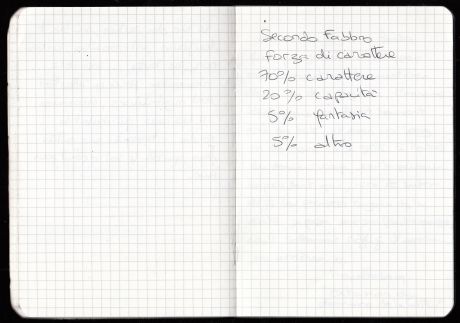 Secondo Fabbro
forza di carattere
70% carattere
20% capacità
5% fantasia
5% altro